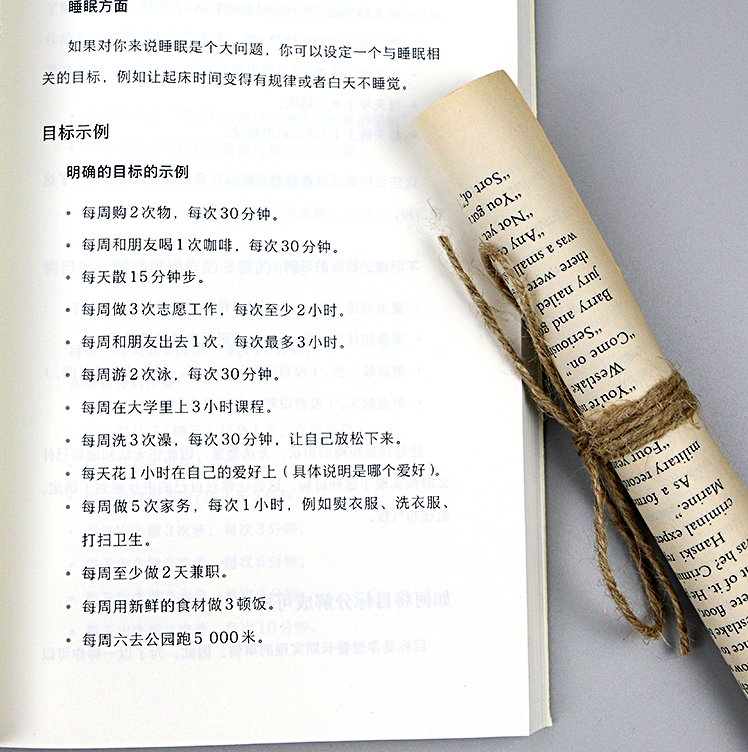 睡眠方面
如果对你来说睡眠是个大问题，你可以设定一个与睡眠相
关的目标，例如让起床时间变得有规律或者白天不睡觉。
目标示例
明确的目标的示例
• 每周购2次物，每次30分钟。
• 每周和朋友喝1次咖啡，每次30分钟。
• 每天散15分钟步。
• 每周做3次志愿工作，每次至少2小时。
• 每周和朋友出去1次，每次最多3小时。
• 每周游2次泳，每次30分钟。
• 每周在大学里上3小时课程。
• 每周洗3次澡，每次30分钟，让自己放松下来。
• 每天花1小时在自己的爱好上（具体说明是哪个爱好）。
• 每周做5次家务，每次1小时，例如熨衣服、洗衣服、
打扫卫生。
• 每周至少做2天兼职。
• 每周用新鲜的食材做3顿饭。
• 每周六去公园跑5 000米。
"Sort of,
"You got
"Not yet
"Any
was a small
there were
jury nailed
Barry and
"Seriously
"Come on.
Westlake
"You're
"Four
military
As a form
Marine."
criminal
Hanski
was he?
of it. He
floor